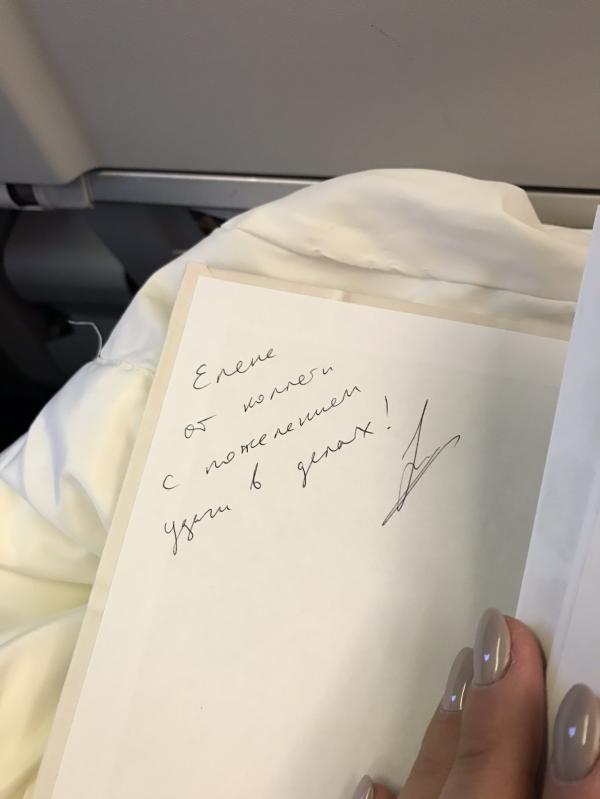 Елене
от коллеги
с пожеланием
удачи в делах!